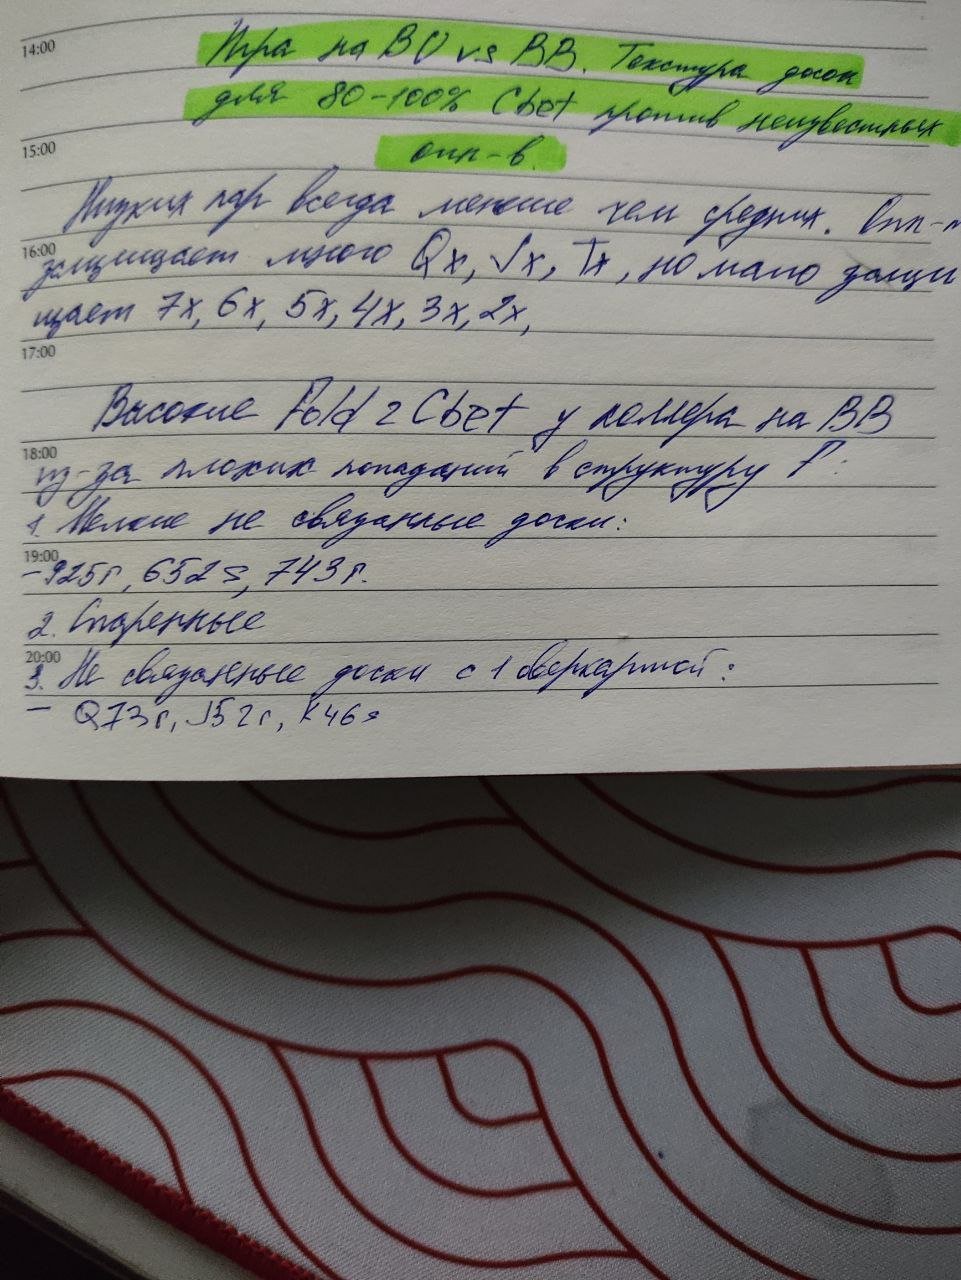 14:00
Игра на BU vs BB. Текстура досок
для 80-100% Cbet против неизвестных
15:00
опп-в.
Низких пар всегда меньше чем средних. Опп-т
16:00
защищает много Qx, Jx, Tx, но мало защи
щает 7x, 6x, 5x, 4x, 3x, 2x,
17:00
Высокие Fold 2 Cbet у коллера на BB
18:00
из-за плохих попаданий в структуру F:
1. Мелкие не связанные доски:
19:00
- 925r, 652s, 743r.
2. Спаренные
20:00
3. Не связанные доски с 1 оверкартой:
- Q73r, J52r, K46s